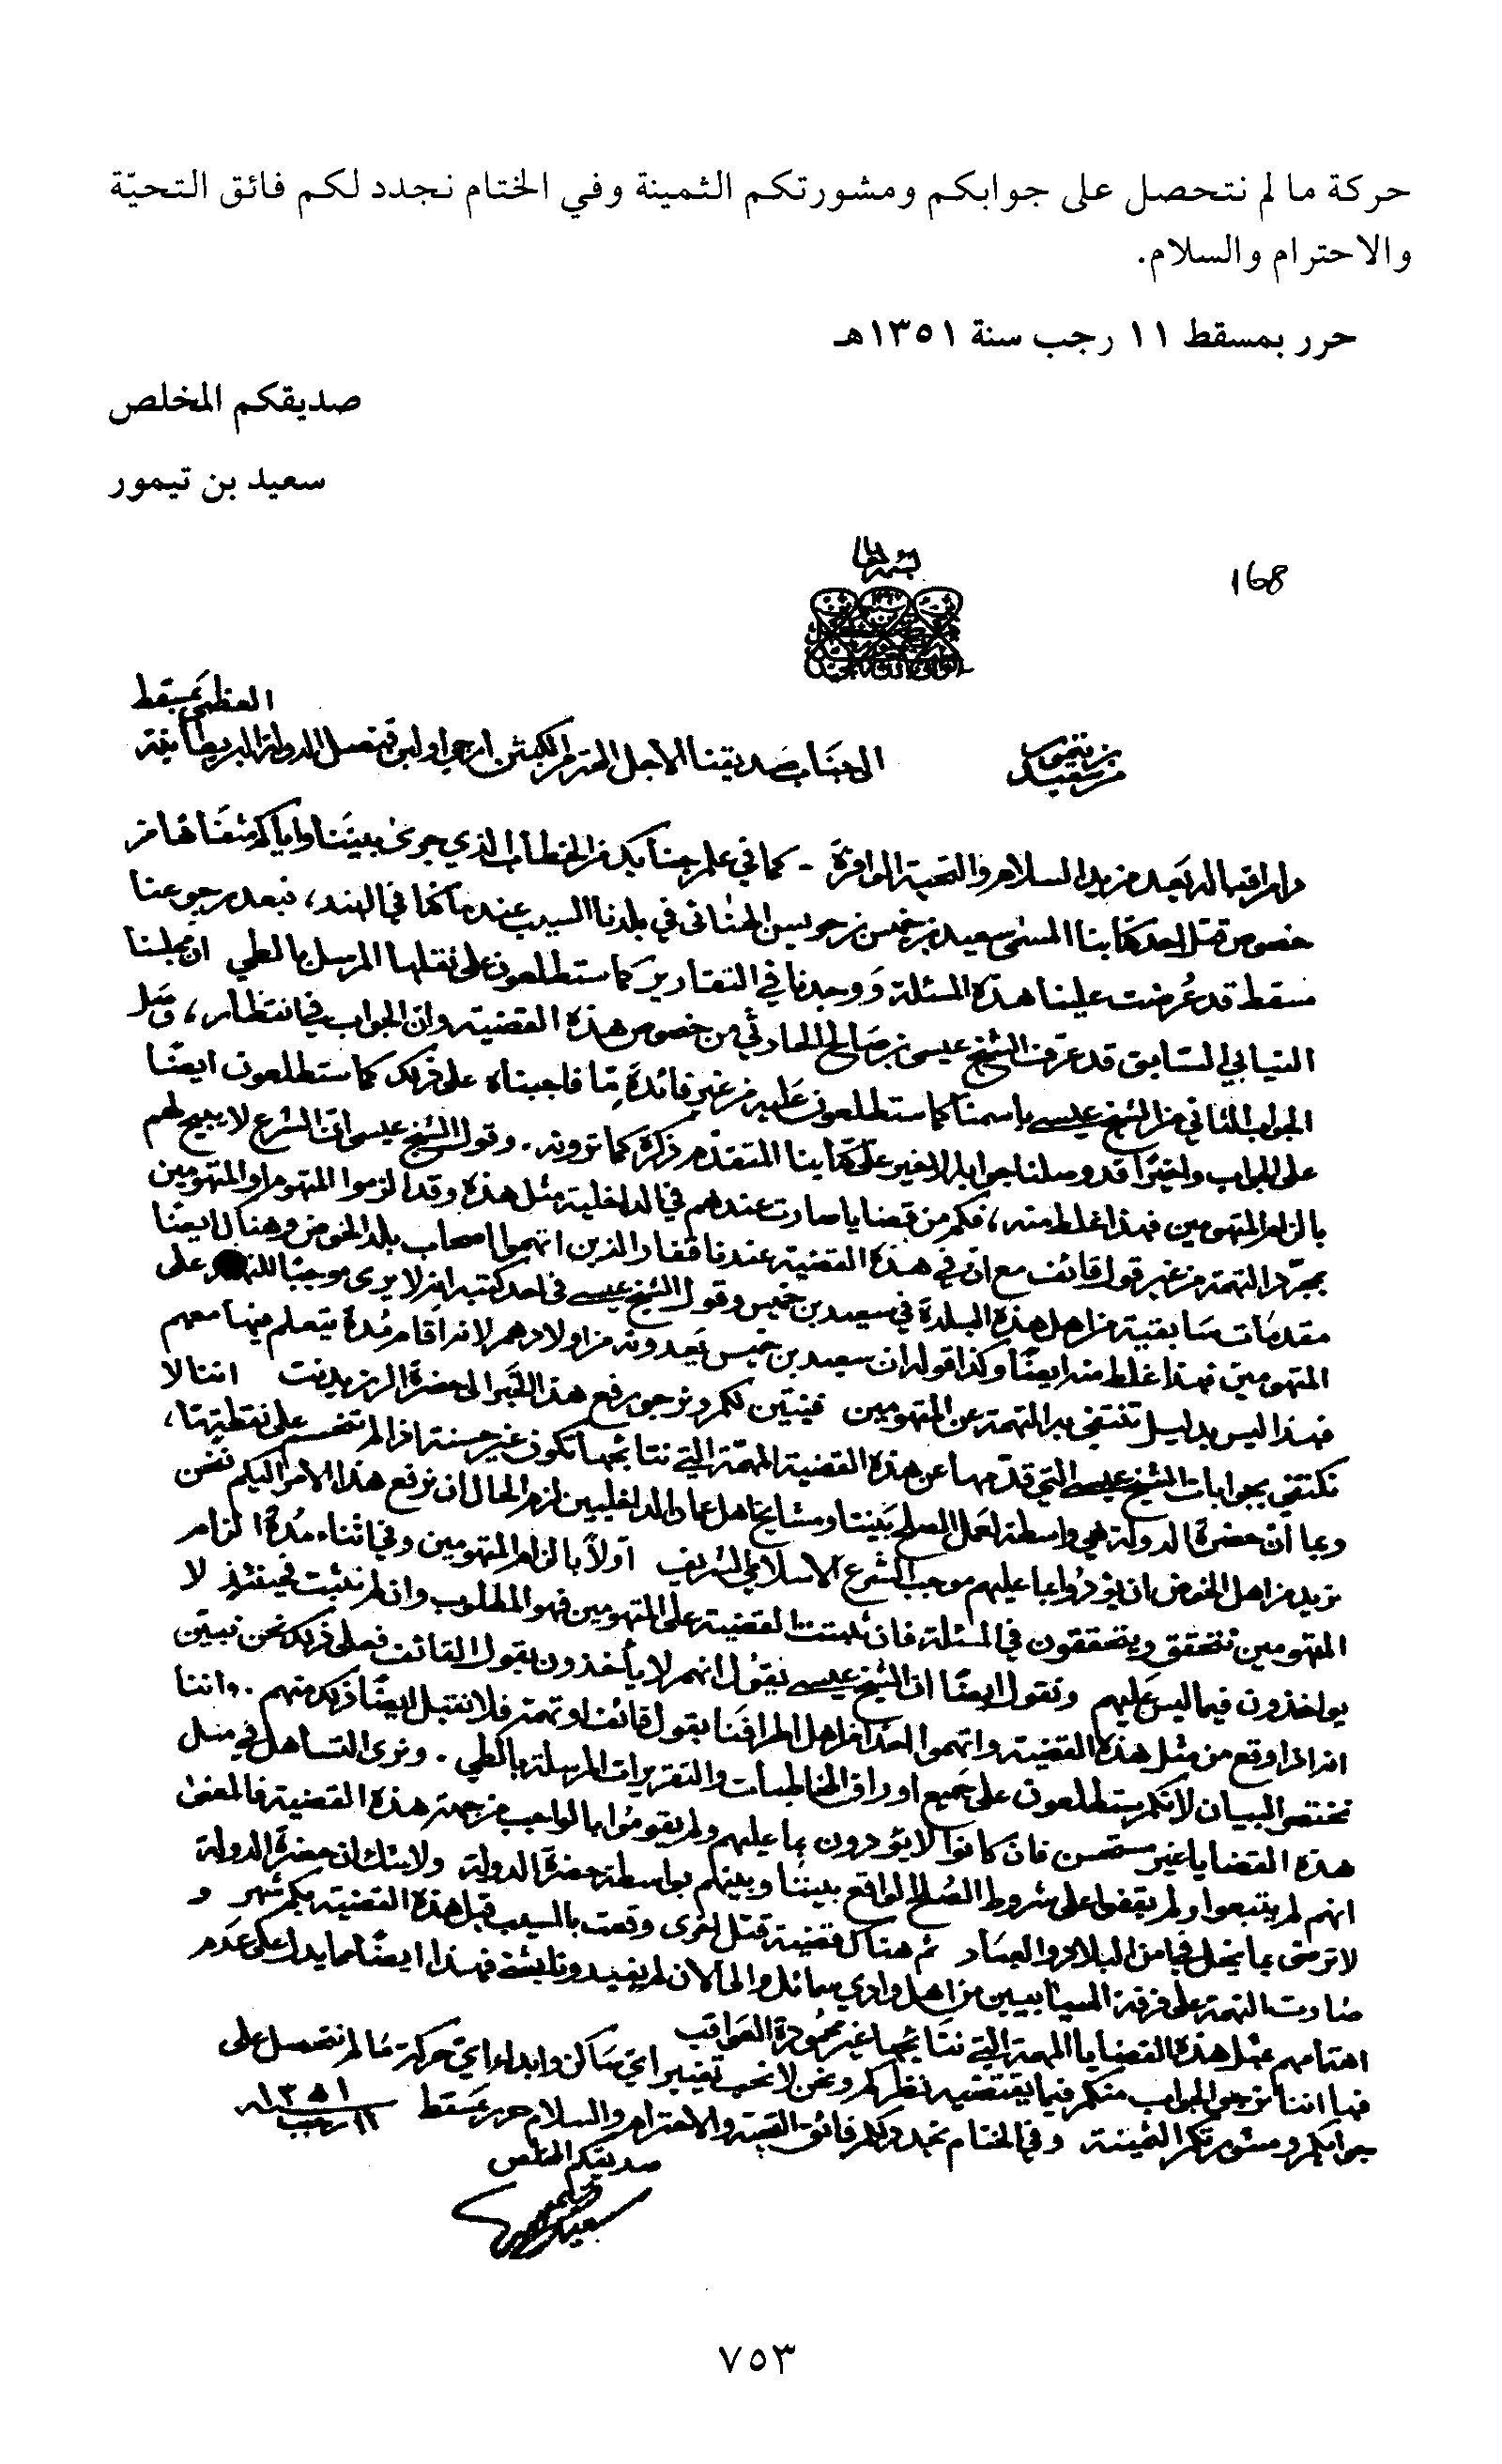 حركة ما لم نتحصل على جوابكم ومشورتكم الثمينة وفي الختام نجدد لكم فائق التحيّة
والاحترام والسلام.
حرر بمسقط ١١ رجب سنة ١٣٥١هـ
صديقكم المخلص
سعيد بن تيمور
168
من سعيد بن تيمور
العظمى بمسقط
الى جناب صديقنا الاجل المحترم الكبتن قنصل الدولة البريطانية
دام اقباله بعد مزيد السلام والتحية الوافرة - كما في علم جنابكم من الخطاب الذي جرى بيننا واياكم شفاها من
خصوص قتل احد كتابنا المسمى سعيد بن خميس بن حويس في بلدنا السيب عند ما كنا في الهند، فبعد رجوعنا
مسقط قد عُرضت علينا هذه المسئلة ووجدنا في التقارير كما ستطلعون على نقلها المرسل بالطي ان مجلسنا
النيابي السابق قد عرف الشيخ عيسى بن صالح الحارثي من خصوص هذه القضية وان الجواب في انتظار، وصل
الجواب الثاني من الشيخ عيسى باسمنا كما ستطلعون عليه من غير فائدة مّا فاجبناه على ذلك كما ستطلعون ايضًا
على الجواب واخيرًا قد وصلنا جوابا الاخير على كتابنا المتقدم ذكره كما ترونه. وقول الشيخ عيسى ان الشرع لا يبيح لهم
بالزام المتهومين فهذا غلط منه، فكم من قضايا صارت عندهم في الداخلية مثل هذه وقد الزموا المتهوم او المتهومين
بمجرّد التهمة من غير قول قائف مع ان في هذه القضية عندنا قفار الذين اتهموا اصحاب بلد الخوض وهناك ايضًا
مقدمات سابقية من اهل هذه البلدة في سعيد بن خميس وقول الشيخ عيسى في احد كتبه انه لا يرى موجبًا على
المتهومين فهذا غلط منه ايضًا وكذا قوله ان سعيد بن خميس يعدونه من اولادهم لانه اقام مُدة يتعلم فيها معهم
فهذا ليس بدليل تنتفي به التهمة عن المتهومين فنبيّن لكم ونرجو رفع هذا الخبر الى حضرة الرزيدنت اننا لا
نكتفي بجوابات الشيخ عيسى التي قدّمها عن هذه القضية المهمّة التي نتائجها تكون غير حسنة اذا لم على نقطتها،
وبما ان حضرة الدولة هي واسطة لعمل الصلح بيننا ومشايخ اهل عمان الداخليين لزم الحال ان نرفع هذا الامر اليكم نحن
نريد من اهل الخوض ان يؤدوا ما عليهم موجب الشرع الاسلامي الشريف اولاً بالزام المتهومين وفي اثناء مُدة الزام
المتهومين نتحقق ويتحققون في المسئلة فان ثبتت القضية على المتهومين فهو المطلوب وان لم تثبت فحينئذٍ لا
يواخذون فيما ليس عليهم ونقول ايضًا ان الشيخ عيسى يقول انهم لا يأخذون بقول القائف فعلى ذلك نحن نبيّن
انه اذا وقع من مثل هذه القضية واتهموا احدًا من اهل اطرافنا بقول قائف او تهمة فلا نقبل ايضًا ذلك منهم. واننا
نختصر البيان لانكم ستطلعون على جميع اوراق المخاطبات والتقريرات المرسلة بالطي. ونرى التساهل في مثل
هذه القضايا غير مستحسن فان كانوا لا يؤدون ما عليهم ولم يقومُوا بالواجب من جهة هذه القضية فالمعنى
انهم لم يتبعوا ولم يقفوا على شروط الصُلح الواقع بيننا وبينهم بواسطة حضرة الدولة ولا شك ان حضرة الدولة
لا ترضى بما يخل في امن البلاد والعباد ثم هناك قضية قتل اخرى وقعت بالسيب قبل هذه القضية بكم شهر و
صارت التهمة على فرقة السيابيين من اهل وادي سمائل والى الان لم يفيدونا بشئ فهذا ايضًا مما يدل على عَدَم
اهتمامهم بمثل هذه القضايا المهمة التي نتائجها غير محمُودة العواقب
فها اننا نرجو الجواب منكم فيما يقتضيه نظركم ونحن لا نحب تغيير اي ساكن وابداء اي حركة مَا لم نتحصل على
جوابكم ومشورتكم الثمينة وفي الختام نجدد لكم فائق التحية والاحترام والسلام حرر بمسقط ١١ رجب ١٣٥١
صديقكم المخلص
سعيد بن تيمور
٧٥٣